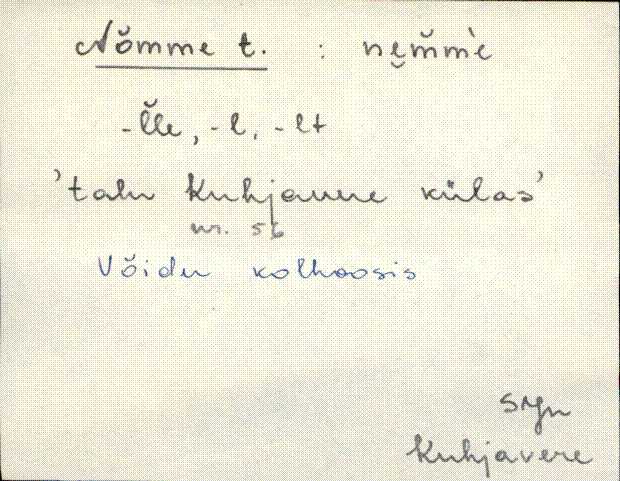 Nõmme t. : nẹm̆m̀e
-l̆le, -l, -lt
'talu Kuhjavere külas'
nr. 56
Võidu kolhoosis
SJn
Kuhjavere